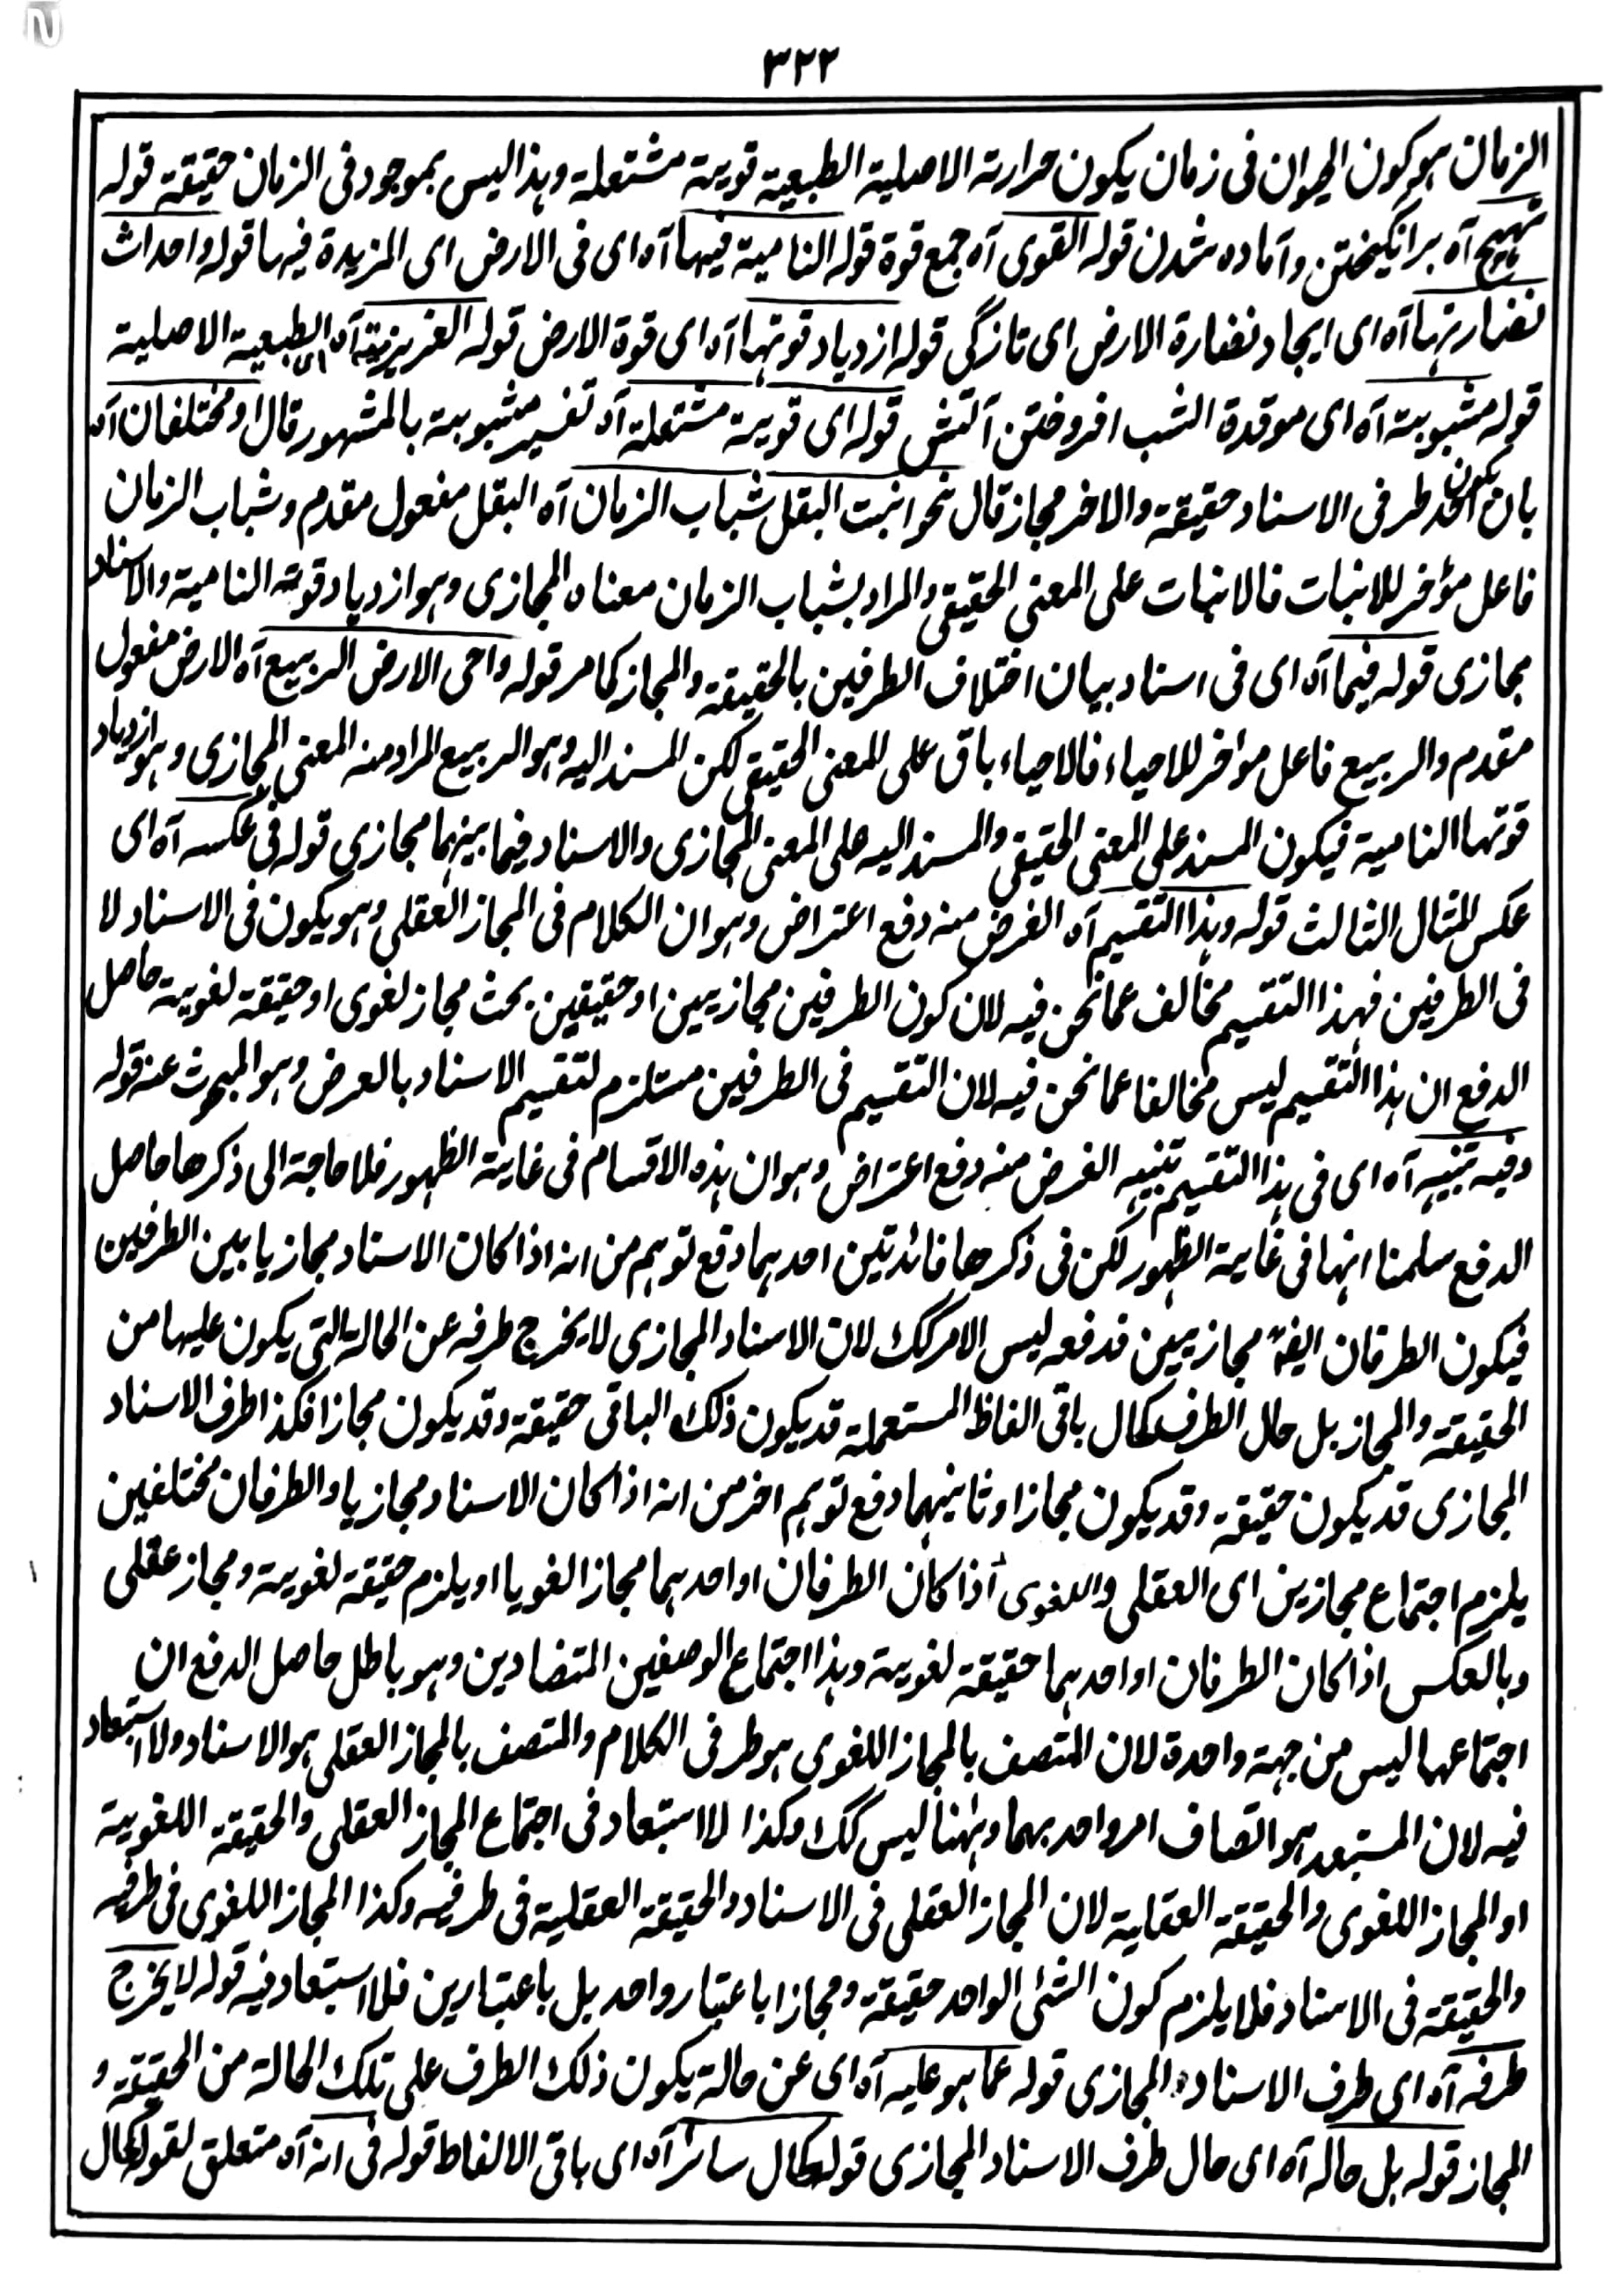 ٣٢٢
الزمان هو كون الحيوان فى زمان يكون حرارته الاصلية الطبعية قوية مشتعلة وهذا ليس بموجود فى الزمان حقيقة قوله
تهيج آه برانگيختن وآماده شدن قوله القوى آه جمع قوة قوله النامية فيها آه اى فى الارض اى المزيدة فيها قوله واحداث
نضارتها آه اى ايجاد نضارة الارض اى تازگى قوله ازدياد قوتها آه اى قوة الارض قوله الغريزية آه اى الطبعية الاصلية
قوله مشبوبة آه اى موقدة الشب افروختن آتش قوله اى قوية مشتعلة آه تفسير مشبوبة بالمشهور قال او مختلفان آه
بان يكون احد طرفى الاسناد حقيقة والاخر مجاز قال نحو انبت البقل شباب الزمان آه البقل مفعول مقدم وشباب الزمان
فاعل مؤخر للانبات فالانبات على المعنى الحقيقى والمراد بشباب الزمان معناه المجازى وهو ازدياد قوته النامية والاسناد
مجازى قوله فيما آه اى فى اسناد بيان اختلاف الطرفين بالحقيقة والمجاز كما مر قوله واحى الارض الربيع آه الارض مفعول
مقدم والربيع فاعل مؤاخر للاحياء فالاحياء باق على المعنى الحقيقى لكن المسند اليه وهو الربيع المراد منه المعنى المجازى وهو ازدياد
قوتها النامية فيكون المسند على المعنى الحقيقى والمسند اليه على المعنى المجازى والاسناد فيما بينهما مجازى قوله فى عكسه آه اى
عكس المثال الثالث قوله وهذا التقسيم آه الغرض منه دفع اعتراض وهو ان الكلام فى المجاز العقلى وهو يكون فى الاسناد لا
فى الطرفين فهذا التقسيم مخالف عما نحن فيه لان كون الطرفين مجازيين او حقيقين بحث مجاز لغوى او حقيقة لغوية حاصل
الدفع ان هذا التقسيم ليس مخالفا عما نحن فيه لان التقسيم فى الطرفين مستلزم لتقسيم الاسناد بالعرض وهو المبحوث عنه قوله
وفيه تنبيه آه اى فى هذا التقسيم تنبيه الغرض منه دفع اعتراض وهو ان هذه الاقسام فى غاية الظهور فلا حاجة الى ذكرها حاصل
الدفع سلمنا انها فى غاية الظهور لكن فى ذكرها فائدتين احدهما دفع توهم من انه اذا كان الاسناد مجازيا بين الطرفين
فيكون الطرفان ايضا مجازيين فدفعه ليس الامر كك لان الاسناد المجازى لا يخرج طرفه عن الحالة التى يكون عليها من
الحقيقة والمجاز بل حال الطرف كحال باقى الفاظ المستعملة قد يكون ذلك الباقى حقيقة وقد يكون مجازا فكذا طرف الاسناد
المجازى قد يكون حقيقة وقد يكون مجازا وثانيهما دفع توهم اخر من انه اذا كان الاسناد مجازيا والطرفان مختلفين
يلزم اجتماع مجازين اى العقلى واللغوى اذا كان الطرفان او احدهما مجازا لغويا او يلزم حقيقة لغوية ومجاز عقلى
وبالعكس اذا كان الطرفان او احدهما حقيقة لغوية وهذا اجتماع الوصفين المتضادين وهو باطل حاصل الدفع ان
اجتماعهما ليس من جهة واحدة لان المتصف بالمجاز اللغوى هو طرفى الكلام والمتصف بالمجاز العقلى هو الاسناد ولا استبعاد
فيه لان المستبعد هو اتصاف امر واحد بهما وههنا ليس كك وكذا لا استبعاد فى اجتماع المجاز العقلى والحقيقة اللغوية
او المجاز اللغوى والحقيقة العقلية لان المجاز العقلى فى الاسناد والحقيقة العقلية فى طرفيه وكذا المجاز اللغوى فى طرفيه
والحقيقة فى الاسناد فلا يلزم كون الشئ الواحد حقيقة ومجازا باعتبار واحد بل باعتبارين فلا استبعاد فيه قوله لا يخرج
طرفه آه اى طرف الاسناد المجازى قوله عما هو عليه آه اى عن حالة يكون ذلك الطرف على تلك الحالة من الحقيقة و
المجاز قوله بل حاله آه اى حال طرف الاسناد المجازى قوله كحال سائر آه اى باقى الالفاظ قوله فى انه آه متعلق لقوله كحال